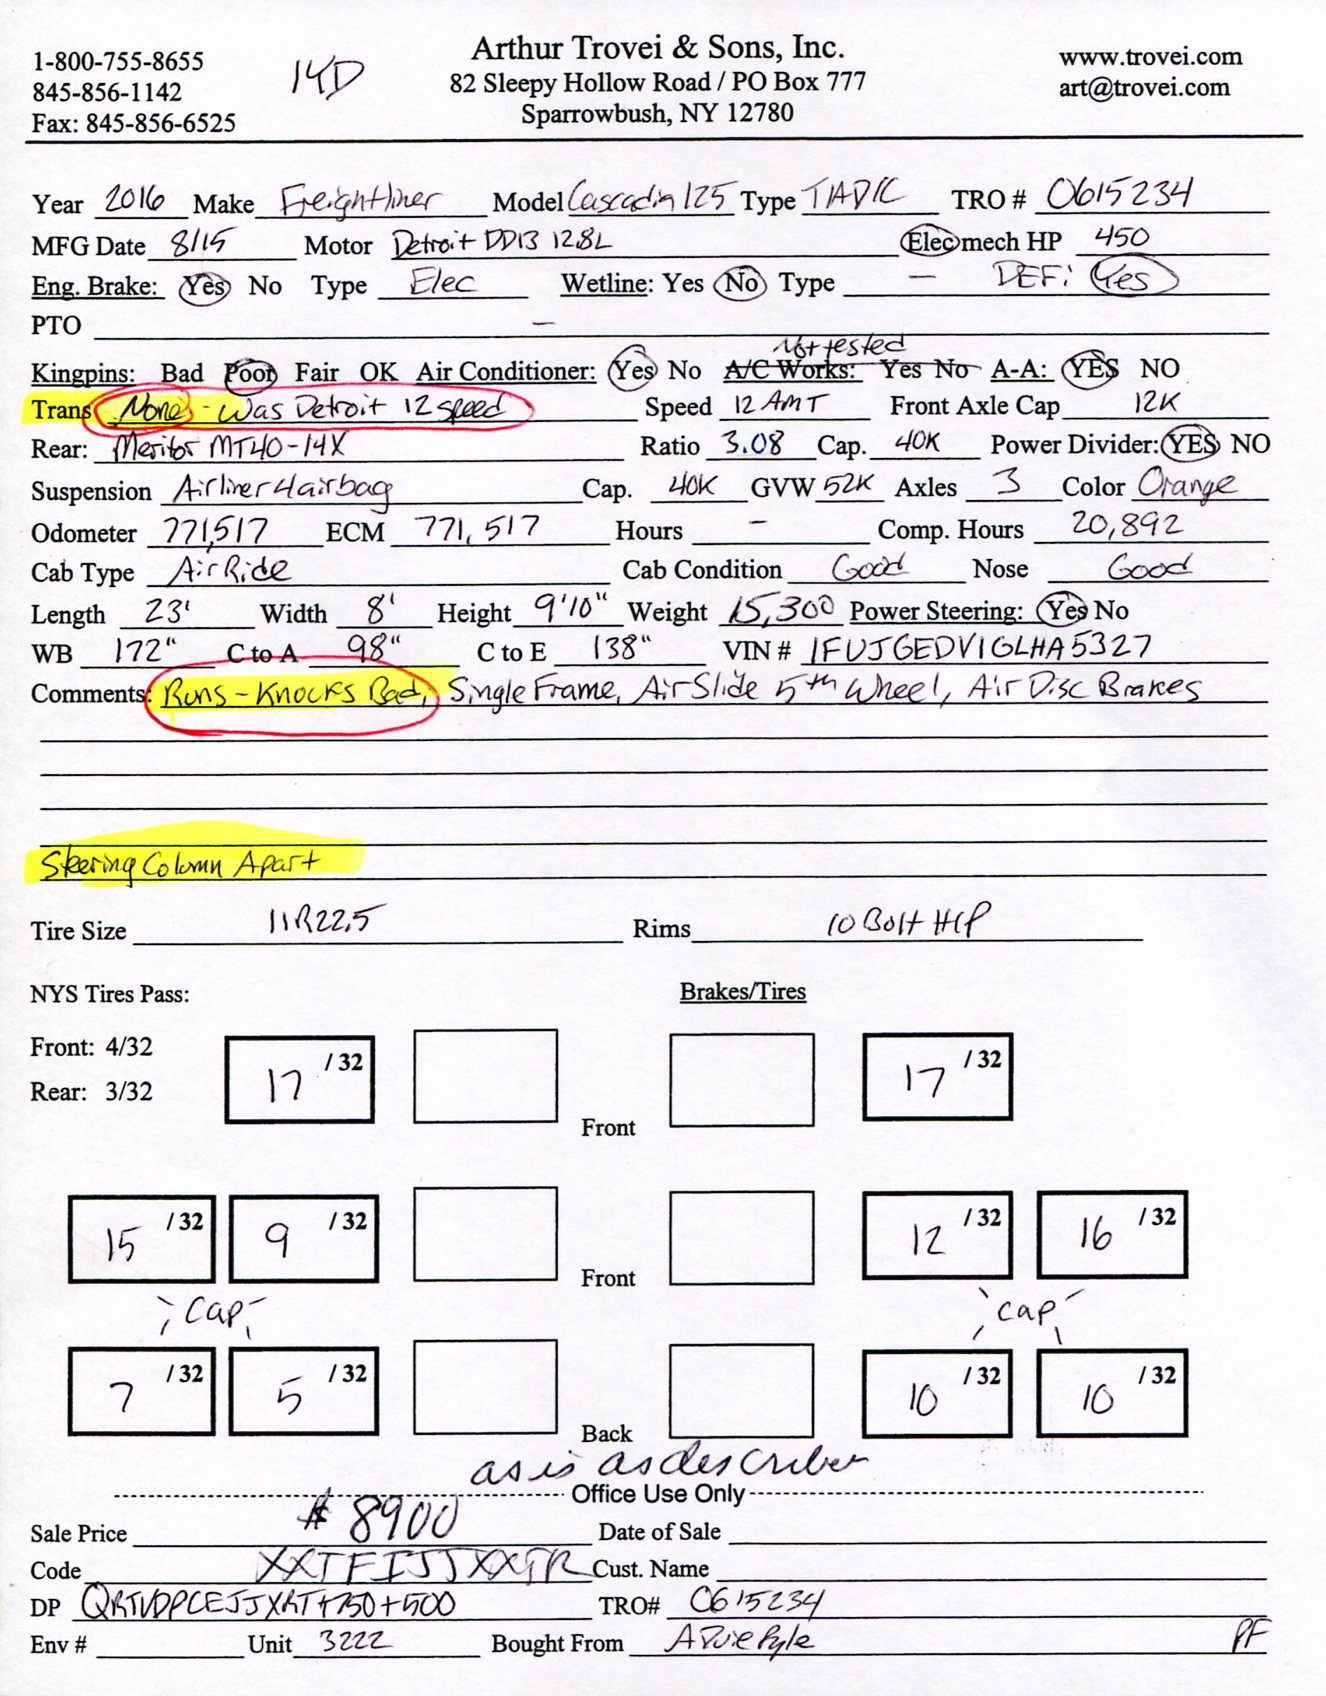 1-800-755-8655
845-856-1142
Fax: 845-856-6525
14D
Arthur Trovei & Sons, Inc.
82 Sleepy Hollow Road / PO Box 777
Sparrowbush, NY 12780
www.trovei.com
art@trovei.com
Year 2016 Make Freightliner Model Cascadia 125 Type TADC TRO # 0615234
MFG Date 8/15 Motor Detroit DD13 12.8L Elec mech HP 450
Eng. Brake: Yes No Type Elec Wetline: Yes No Type — DEF: Yes
PTO —
Not tested
Kingpins: Bad Poor Fair OK Air Conditioner: Yes No A/C Works: Yes No A-A: YES NO
Trans None - Was Detroit 12 speed Speed 12 AMT Front Axle Cap 12K
Rear: Meritor MT40-14X Ratio 3.08 Cap. 40K Power Divider: YES NO
Suspension Airliner 4 airbag Cap. 40K GVW 52K Axles 3 Color Orange
Odometer 771,517 ECM 771,517 Hours - Comp. Hours 20,892
Cab Type Air Ride Cab Condition Good Nose Good
Length 23' Width 8' Height 9'10" Weight 15,300 Power Steering: Yes No
WB 172" C to A 98" C to E 138" VIN # 1FUJGEDV1GLHA5327
Comments: Runs - Knocks Bad, Single Frame, Air Slide 5th Wheel, Air Disc Brakes
Steering Column Apart
Tire Size 11R22.5 Rims 10 Bolt HP
NYS Tires Pass: Brakes/Tires
Front: 4/32
Rear: 3/32
17 /32 17 /32
Front
15 /32 9 /32 12 /32 16 /32
Front
Cap Cap
7 /32 5 /32 10 /32 10 /32
Back
as is as described
Office Use Only
Sale Price $8900 Date of Sale
Code XXTFIJJXXTR Cust. Name
DP QRTVDPCEJJXRT+750+500 TRO# 0615234
Env # Unit 3222 Bought From PF